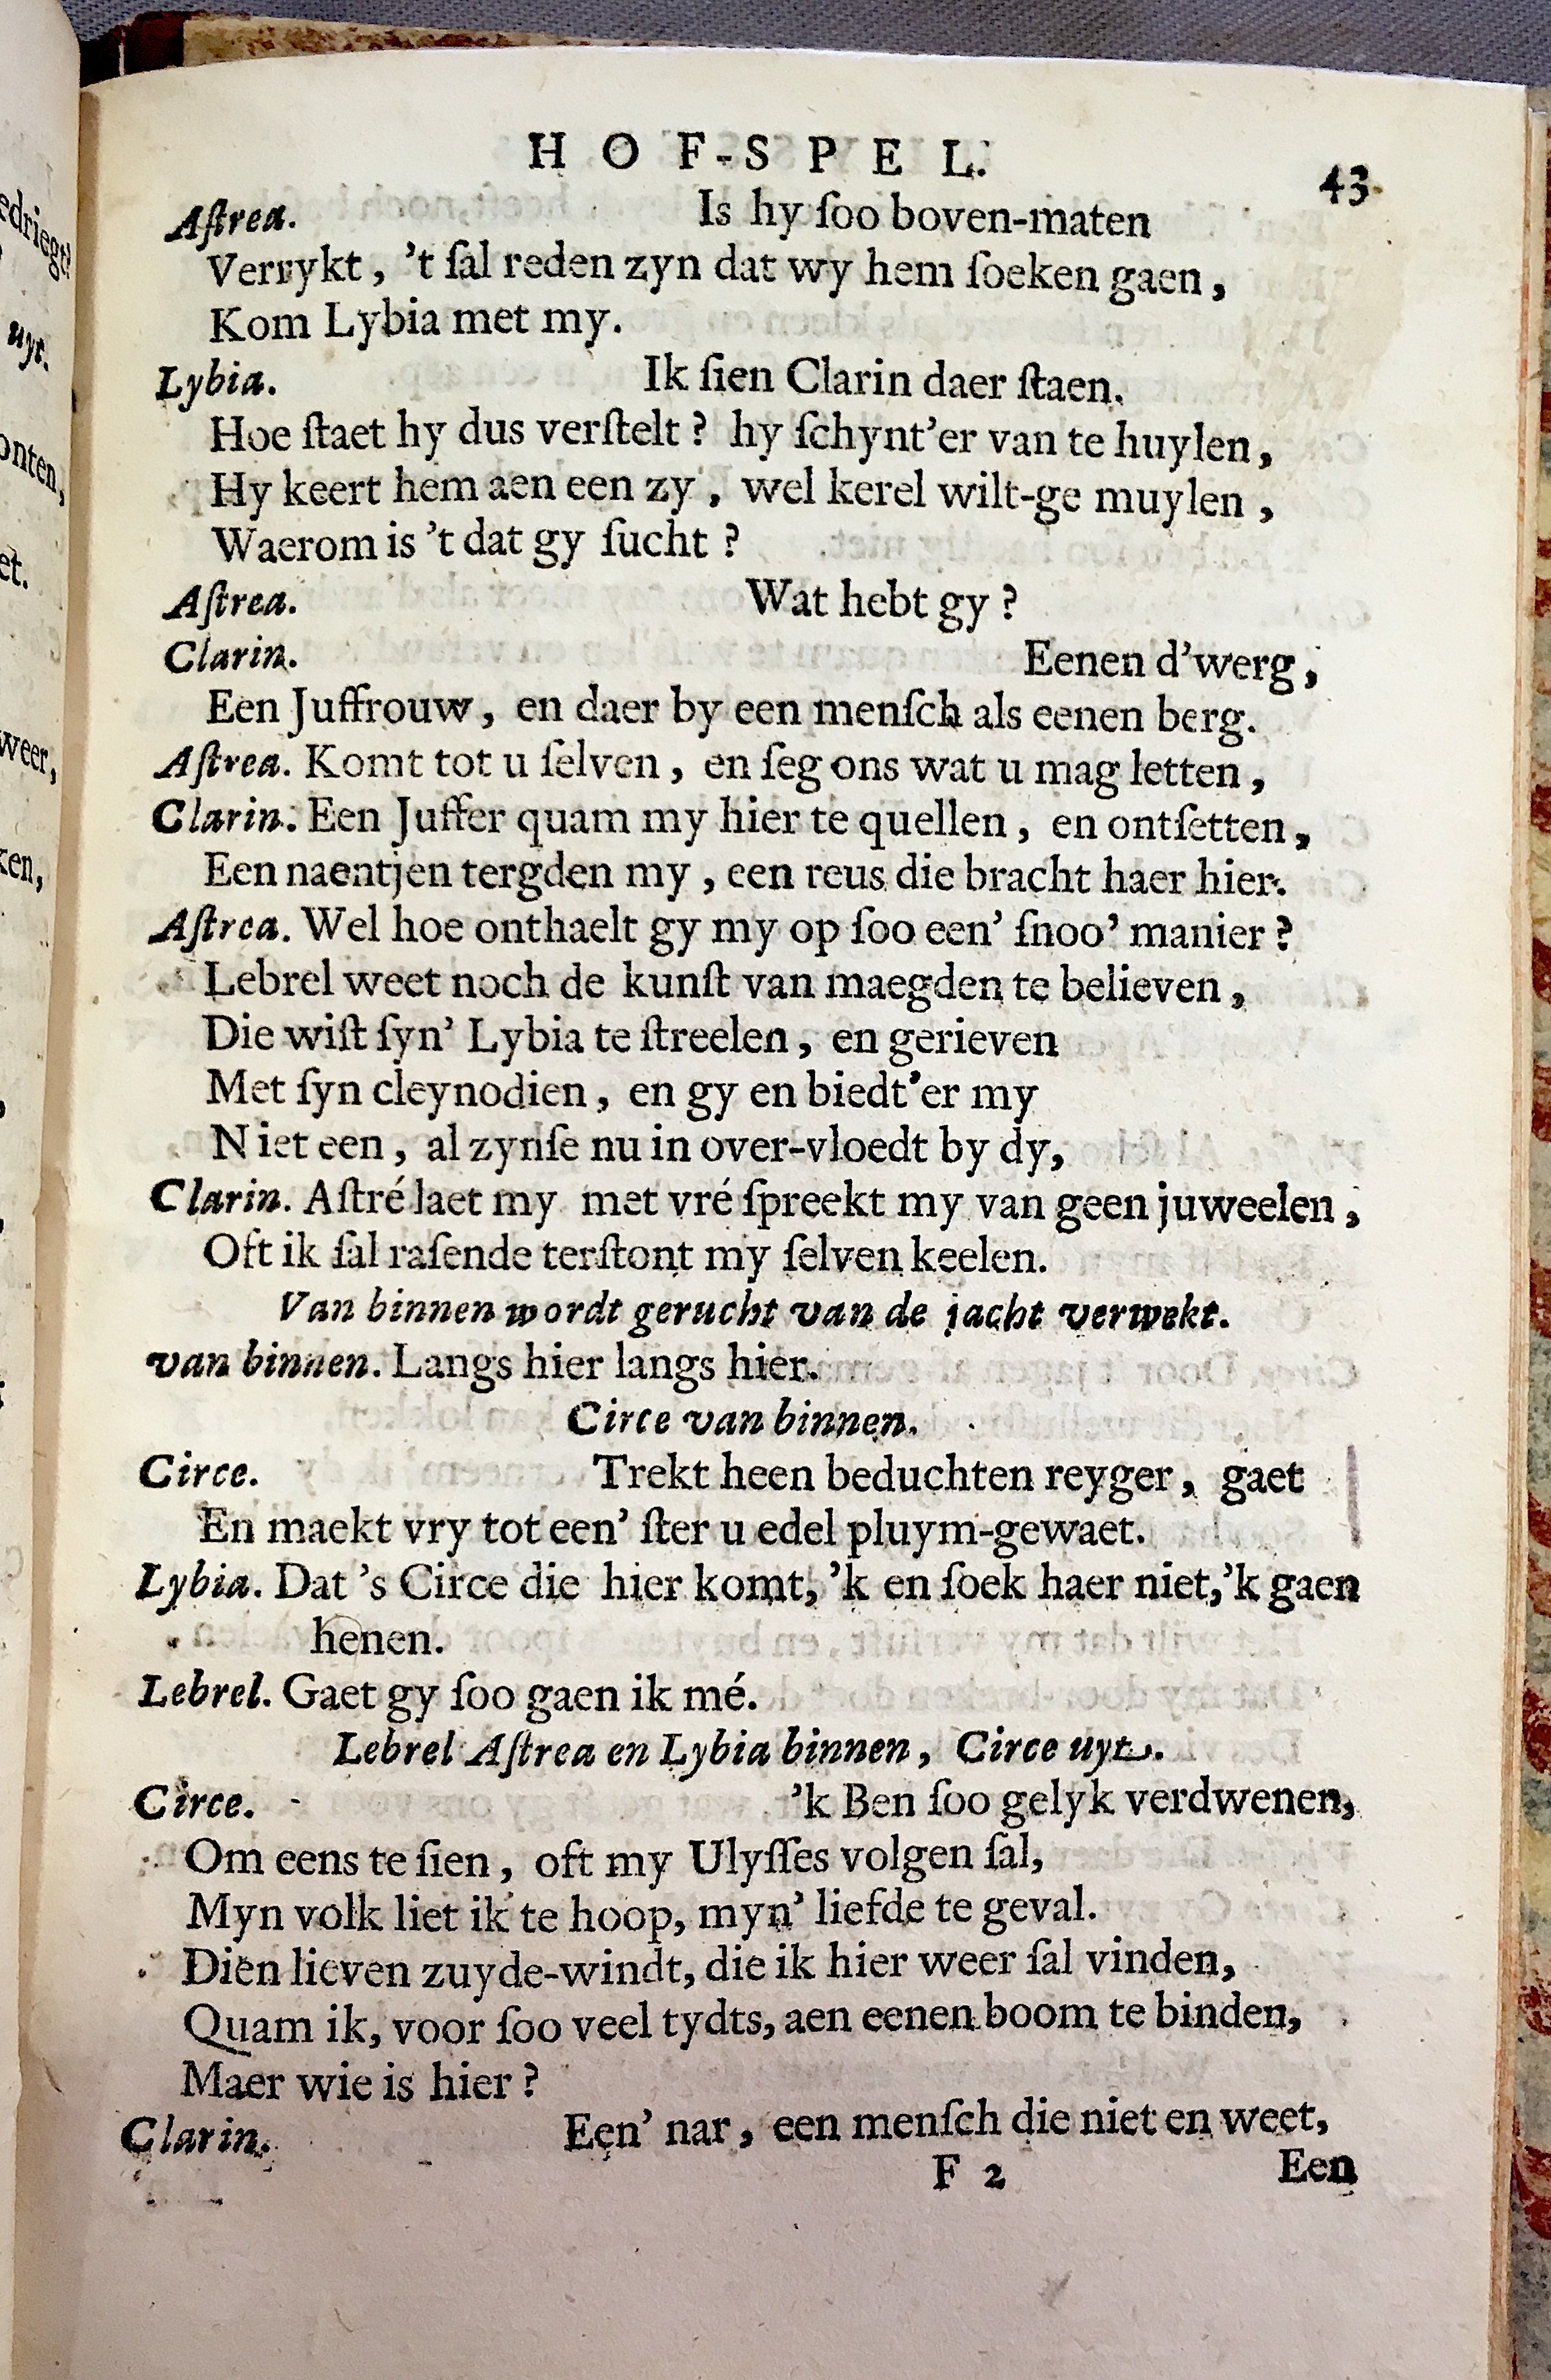 HOF-SPEL.
43
Aſtrea. Is hy ſoo boven-maten
Verrykt, 't ſal reden zyn dat wy hem ſoeken gaen,
Kom Lybia met my.
Lybia. Ik ſien Clarin daer ſtaen.
Hoe ſtaet hy dus verſtelt? hy ſchynt'er van te huylen,
Hy keert hem aen een zy, wel kerel wilt-ge muylen,
Waerom is 't dat gy ſucht?
Aſtrea. Wat hebt gy?
Clarin. Eenen d'werg,
Een Juffrouw, en daer by een menſch als eenen berg.
Aſtrea. Komt tot u ſelven, en ſeg ons wat u mag letten,
Clarin. Een Juffer quam my hier te quellen, en ontſetten,
Een naentjen tergden my, een reus die bracht haer hier.
Aſtrea. Wel hoe onthaelt gy my op ſoo een' ſnoo' manier?
Lebrel weet noch de kunſt van maegden te believen,
Die wiſt ſyn' Lybia te ſtreelen, en gerieven
Met ſyn cleynodien, en gy en biedt'er my
Niet een, al zynſe nu in over-vloedt by dy,
Clarin. Aſtré laet my met vré ſpreekt my van geen juweelen,
Oft ik ſal raſende terſtont my ſelven keelen.
Van binnen wordt gerucht van de jacht verwekt.
van binnen. Langs hier langs hier.
Circe van binnen.
Circe. Trekt heen beduchten reyger, gaet
En maekt vry tot een' ſter u edel pluym-gewaet.
Lybia. Dat 's Circe die hier komt, 'k en ſoek haer niet, 'k gaen
henen.
Lebrel. Gaet gy ſoo gaen ik mé.
Lebrel Aſtrea en Lybia binnen, Circe uyt.
Circe. 'k Ben ſoo gelyk verdwenen,
Om eens te ſien, oft my Ulyſſes volgen ſal,
Myn volk liet ik te hoop, myn' liefde te geval.
Dien lieven zuyde-windt, die ik hier weer ſal vinden,
Quam ik, voor ſoo veel tydts, aen eenen boom te binden,
Maer wie is hier?
Clarin. Een' nar, een menſch die niet en weet,
F 2 Een